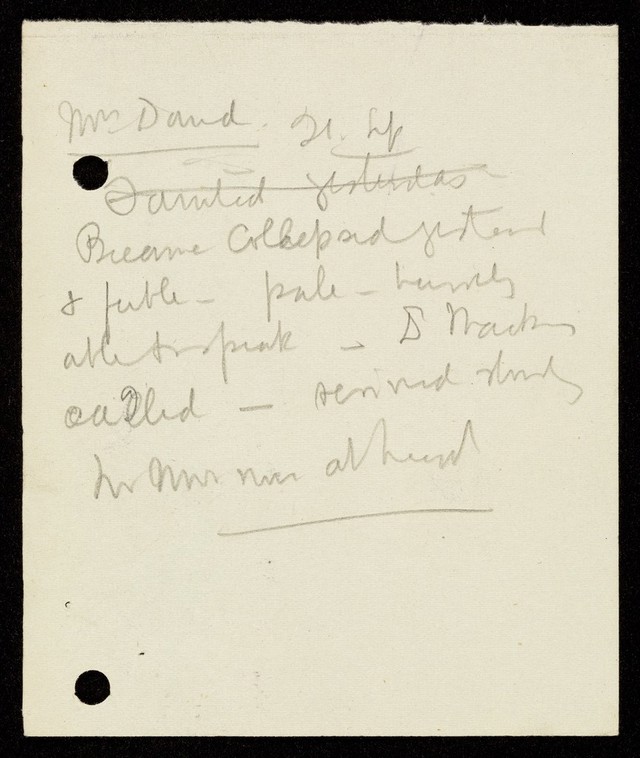 Mrs David. 21. Sep
Fainted yesterday
Became Collapsed yesterd
& feeble - pale - barely
able to speak - Dr
called - revived slowly
at hand